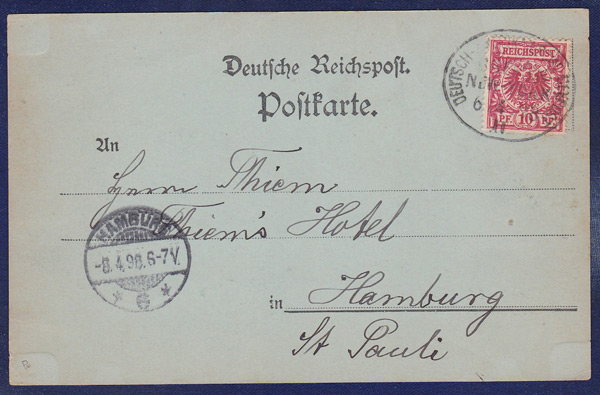 Deutsche Reichspost.
Postkarte.
REICHSPOST
PF 10 PF
DEUTSCH-
6 4
An
Herrn Thiem
Thiem's Hotel
in Hamburg
St Pauli
HAMBURG
-8.4.98.6-7V.